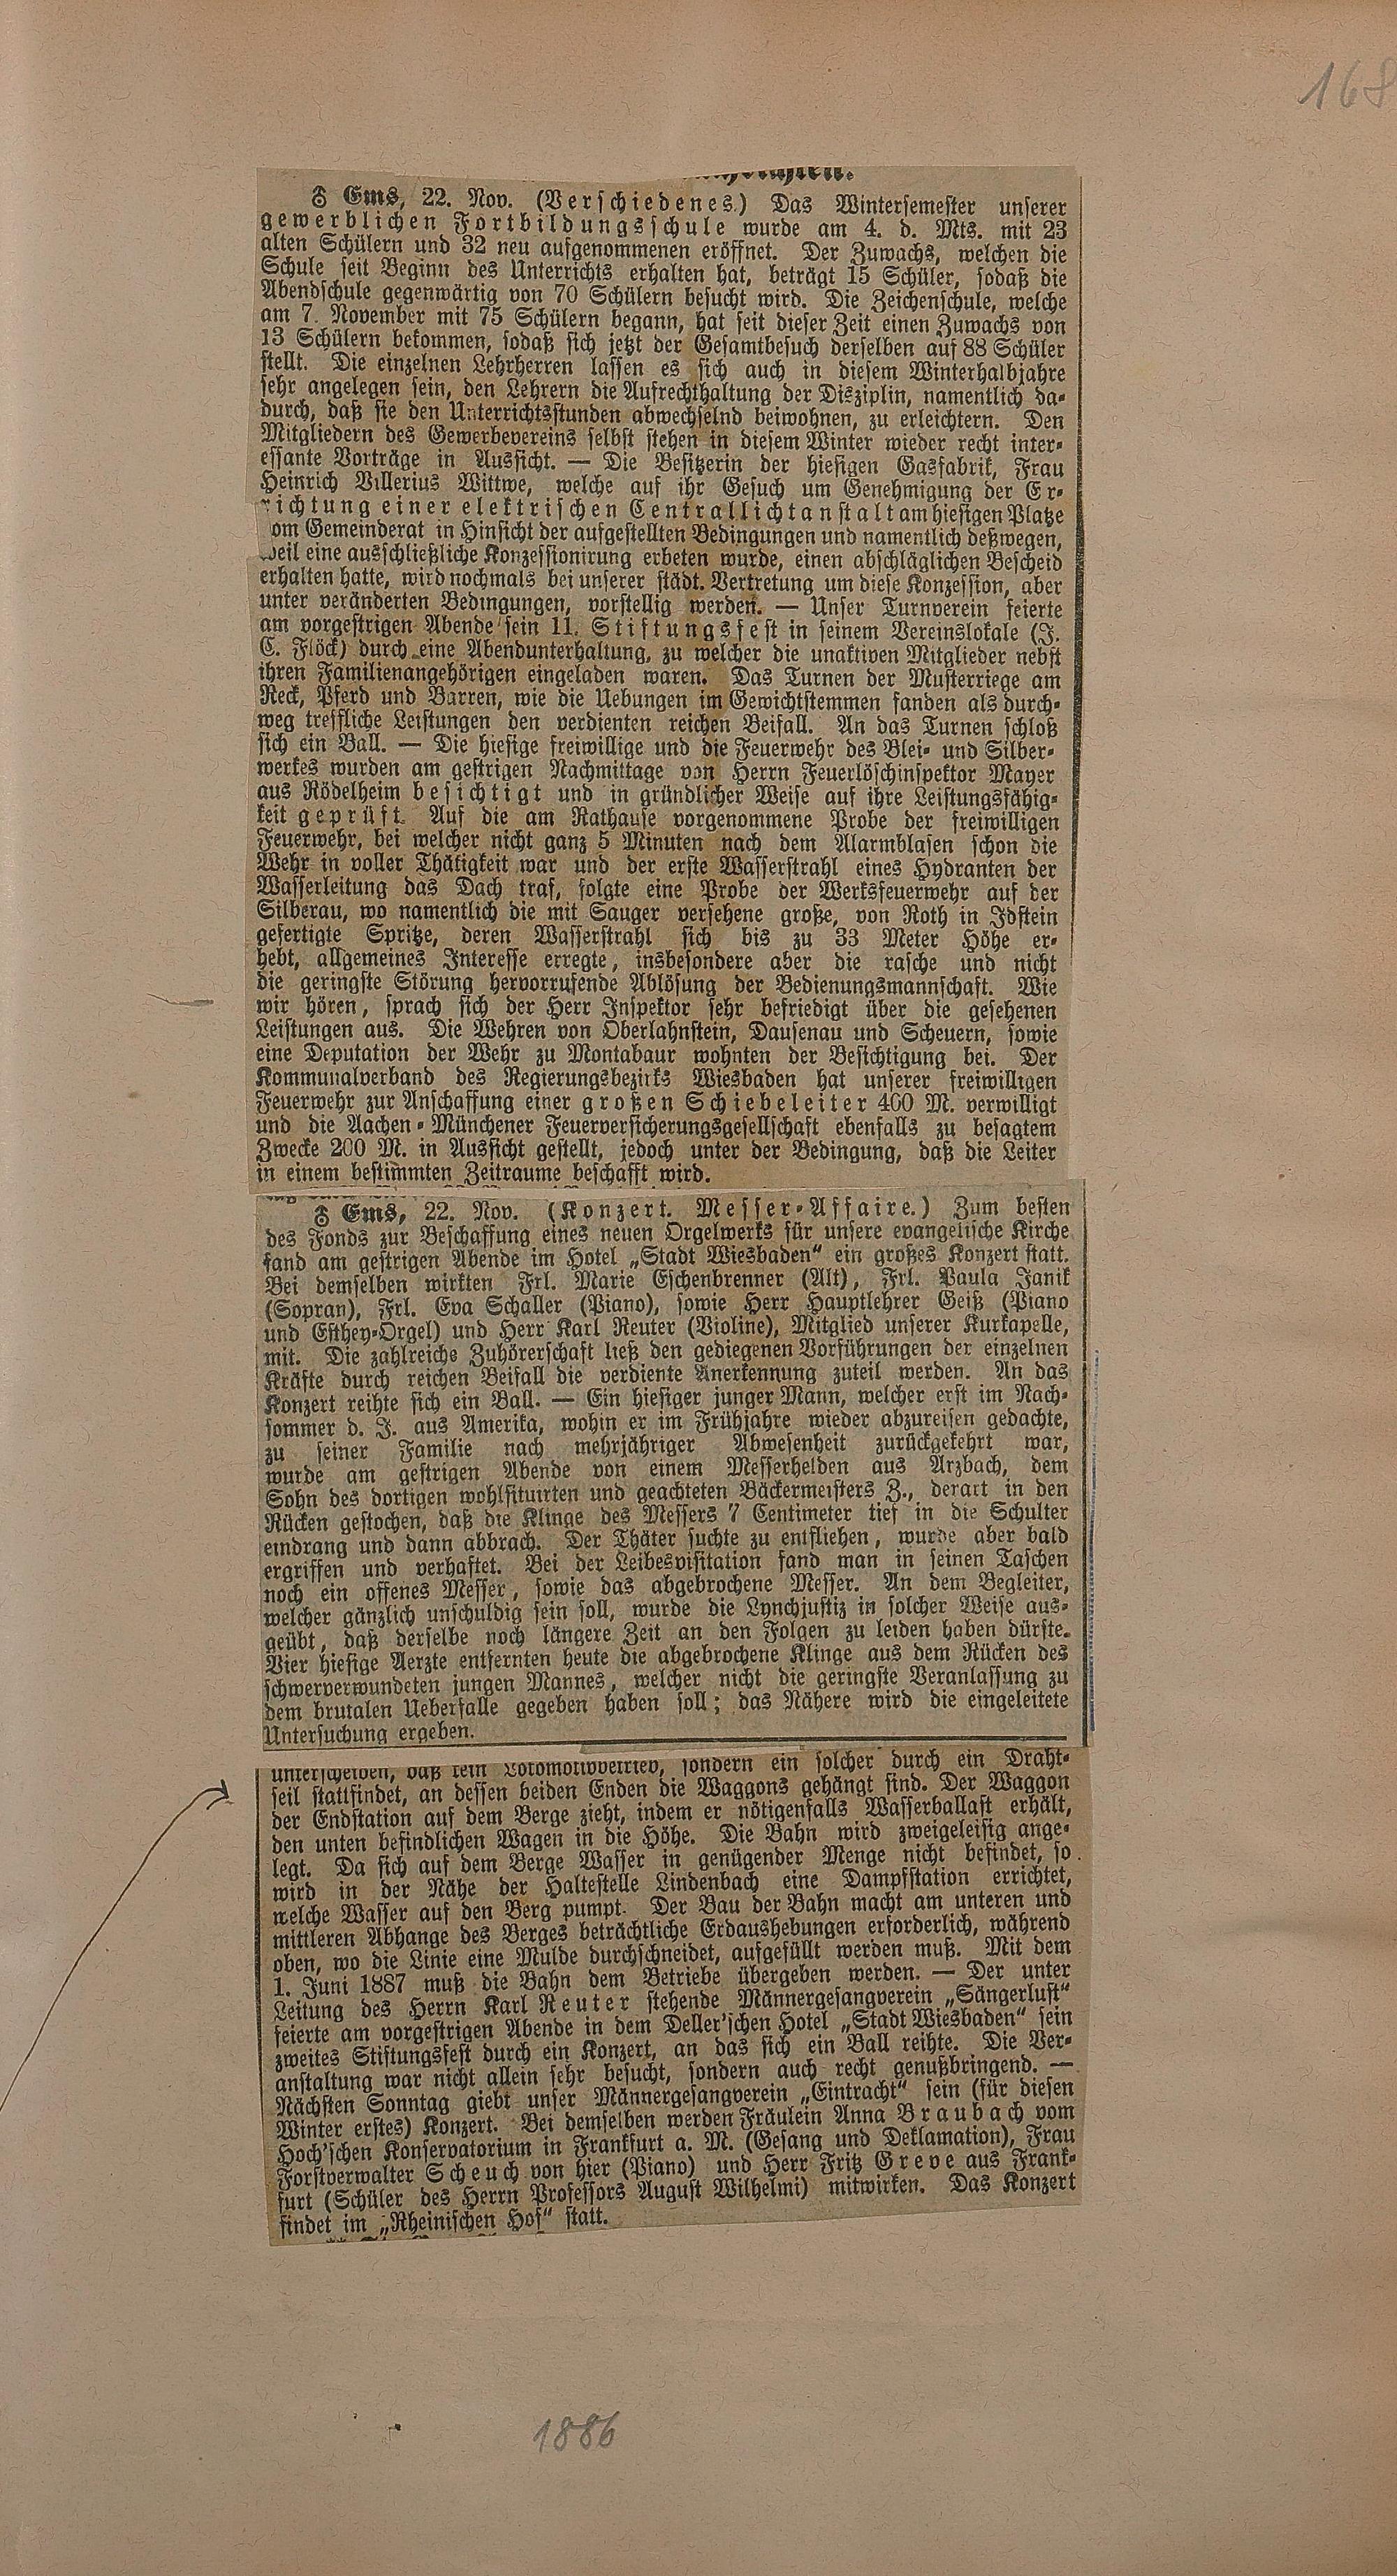 168
☿ Ems, 22. Nov. (Verschiedenes.) Das Wintersemester unserer
gewerblichen Fortbildungsschule wurde am 4. d. Mts. mit 23
alten Schülern und 32 neu aufgenommenen eröffnet. Der Zuwachs, welchen die
Schule seit Beginn des Unterrichts erhalten hat, beträgt 15 Schüler, sodaß die
Abendschule gegenwärtig von 70 Schülern besucht wird. Die Zeichenschule, welche
am 7. November mit 75 Schülern begann, hat seit dieser Zeit einen Zuwachs von
13 Schülern bekommen, sodaß sich jetzt der Gesamtbesuch derselben auf 88 Schüler
stellt. Die einzelnen Lehrherren lassen es sich auch in diesem Winterhalbjahre
sehr angelegen sein, den Lehrern die Aufrechthaltung der Disziplin, namentlich da-
durch, daß sie den Unterrichtsstunden abwechselnd beiwohnen, zu erleichtern. Den
Mitgliedern des Gewerbevereins selbst stehen in diesem Winter wieder recht inter-
essante Vorträge in Aussicht. — Die Besitzerin der hiesigen Gasfabrik, Frau
Heinrich Villerius Wittwe, welche auf ihr Gesuch um Genehmigung der Er-
richtung einer elektrischen Centrallichtanstalt am hiesigen Platze
om Gemeinderat in Hinsicht der aufgestellten Bedingungen und namentlich deßwegen,
weil eine ausschließliche Konzessionirung erbeten wurde, einen abschläglichen Bescheid
erhalten hatte, wird nochmals bei unserer städt. Vertretung um diese Konzession, aber
unter veränderten Bedingungen, vorstellig werden. — Unser Turnverein feierte
am vorgestrigen Abende sein 11. Stiftungsfest in seinem Vereinslokale (J.
C. Flöck) durch eine Abendunterhaltung, zu welcher die unaktiven Mitglieder nebst
ihren Familienangehörigen eingeladen waren. Das Turnen der Musterriege am
Reck, Pferd und Barren, wie die Uebungen im Gewichtstemmen fanden als durch-
weg treffliche Leistungen den verdienten reichen Beifall. An das Turnen schloß
sich ein Ball. — Die hiesige freiwillige und die Feuerwehr des Blei- und Silber-
werkes wurden am gestrigen Nachmittage von Herrn Feuerlöschinspektor Mayer
aus Rödelheim besichtigt und in gründlicher Weise auf ihre Leistungsfähig-
keit geprüft. Auf die am Rathause vorgenommene Probe der freiwilligen
Feuerwehr, bei welcher nicht ganz 5 Minuten nach dem Alarmblasen schon die
Wehr in voller Thätigkeit war und der erste Wasserstrahl eines Hydranten der
Wasserleitung das Dach traf, folgte eine Probe der Werksfeuerwehr auf der
Silberau, wo namentlich die mit Sauger versehene große, von Roth in Idstein
gefertigte Spritze, deren Wasserstrahl sich bis zu 33 Meter Höhe er-
hebt, allgemeines Interesse erregte, insbesondere aber die rasche und nicht
die geringste Störung hervorrufende Ablösung der Bedienungsmannschaft. Wie
wir hören, sprach sich der Herr Inspektor sehr befriedigt über die gesehenen
Leistungen aus. Die Wehren von Oberlahnstein, Dausenau und Scheuern, sowie
eine Deputation der Wehr zu Montabaur wohnten der Besichtigung bei. Der
Kommunalverband des Regierungsbezirks Wiesbaden hat unserer freiwilligen
Feuerwehr zur Anschaffung einer großen Schiebeleiter 400 M. verwilligt
und die Aachen-Münchener Feuerversicherungsgesellschaft ebenfalls zu besagtem
Zwecke 200 M. in Aussicht gestellt, jedoch unter der Bedingung, daß die Leiter
in einem bestimmten Zeitraume beschafft wird.
☿ Ems, 22. Nov. (Konzert. Messer-Affaire.) Zum besten
des Fonds zur Beschaffung eines neuen Orgelwerks für unsere evangelische Kirche
fand am gestrigen Abende im Hotel „Stadt Wiesbaden“ ein großes Konzert statt.
Bei demselben wirkten Frl. Marie Eschenbrenner (Alt), Frl. Paula Janik
(Sopran), Frl. Eva Schaller (Piano), sowie Herr Hauptlehrer Geiß (Piano
und Esthey-Orgel) und Herr Karl Reuter (Violine), Mitglied unserer Kurkapelle,
mit. Die zahlreiche Zuhörerschaft ließ den gediegenen Vorführungen der einzelnen
Kräfte durch reichen Beifall die verdiente Anerkennung zuteil werden. An das
Konzert reihte sich ein Ball. — Ein hiesiger junger Mann, welcher erst im Nach-
sommer d. J. aus Amerika, wohin er im Frühjahre wieder abzureisen gedachte,
zu seiner Familie nach mehrjähriger Abwesenheit zurückgekehrt war,
wurde am gestrigen Abende von einem Messerhelden aus Arzbach, dem
Sohn des dortigen wohlsituirten und geachteten Bäckermeisters Z., derart in den
Rücken gestochen, daß die Klinge des Messers 7 Centimeter tief in die Schulter
eindrang und dann abbrach. Der Thäter suchte zu entfliehen, wurde aber bald
ergriffen und verhaftet. Bei der Leibesvisitation fand man in seinen Taschen
noch ein offenes Messer, sowie das abgebrochene Messer. An dem Begleiter,
welcher gänzlich unschuldig sein soll, wurde die Lynchjustiz in solcher Weise aus-
geübt, daß derselbe noch längere Zeit an den Folgen zu leiden haben dürfte.
Vier hiesige Aerzte entfernten heute die abgebrochene Klinge aus dem Rücken des
schwerverwundeten jungen Mannes, welcher nicht die geringste Veranlassung zu
dem brutalen Ueberfalle gegeben haben soll; das Nähere wird die eingeleitete
Untersuchung ergeben.
unterscheiden, daß kein Lokomotivbetrieb, sondern ein solcher durch ein Draht-
seil stattfindet, an dessen beiden Enden die Waggons gehängt sind. Der Waggon
der Endstation auf dem Berge zieht, indem er nötigenfalls Wasserballast erhält,
den unten befindlichen Wagen in die Höhe. Die Bahn wird zweigeleisig ange-
legt. Da sich auf dem Berge Wasser in genügender Menge nicht befindet, so
wird in der Nähe der Haltestelle Lindenbach eine Dampfstation errichtet,
welche Wasser auf den Berg pumpt. Der Bau der Bahn macht am unteren und
mittleren Abhange des Berges beträchtliche Erdaushebungen erforderlich, während
oben, wo die Linie eine Mulde durchschneidet, aufgefüllt werden muß. Mit dem
1. Juni 1887 muß die Bahn dem Betriebe übergeben werden. — Der unter
Leitung des Herrn Karl Reuter stehende Männergesangverein „Sängerlust“
feierte am vorgestrigen Abende in dem Deller'schen Hotel „Stadt Wiesbaden“ sein
zweites Stiftungsfest durch ein Konzert, an das sich ein Ball reihte. Die Ver-
anstaltung war nicht allein sehr besucht, sondern auch recht genußbringend. —
Nächsten Sonntag giebt unser Männergesangverein „Eintracht“ sein (für diesen
Winter erstes) Konzert. Bei demselben werden Fräulein Anna Braubach vom
Hoch'schen Konservatorium in Frankfurt a. M. (Gesang und Deklamation), Frau
Forstverwalter Scheuch von hier (Piano) und Herr Fritz Greve aus Frank-
furt (Schüler des Herrn Professors August Wilhelmi) mitwirken. Das Konzert
findet im „Rheinischen Hof“ statt.
1886